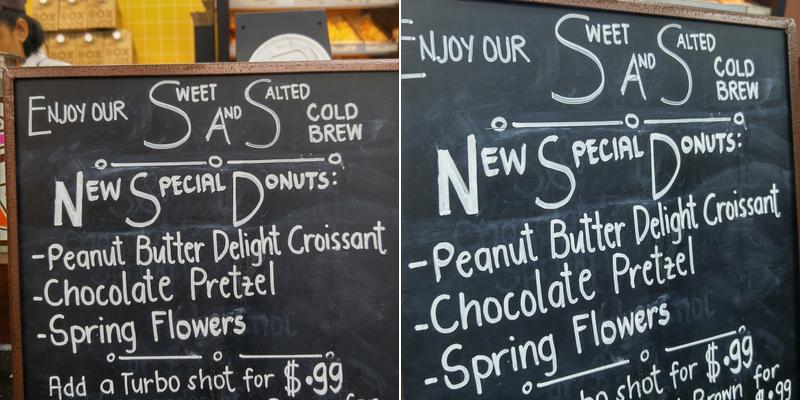 BOX BOX BOX
ENJOY OUR SWEET AND SALTED COLD BREW
NEW SPECIAL DONUTS:
-Peanut Butter Delight Croissant
-Chocolate Pretzel
-Spring Flowers
Add a Turbo shot for $.99
for
ENJOY OUR SWEET AND SALTED COLD BREW
NEW SPECIAL DONUTS:
-Peanut Butter Delight Croissant
-Chocolate Pretzel
-Spring Flowers
shot for $.99
Brown for
$.99